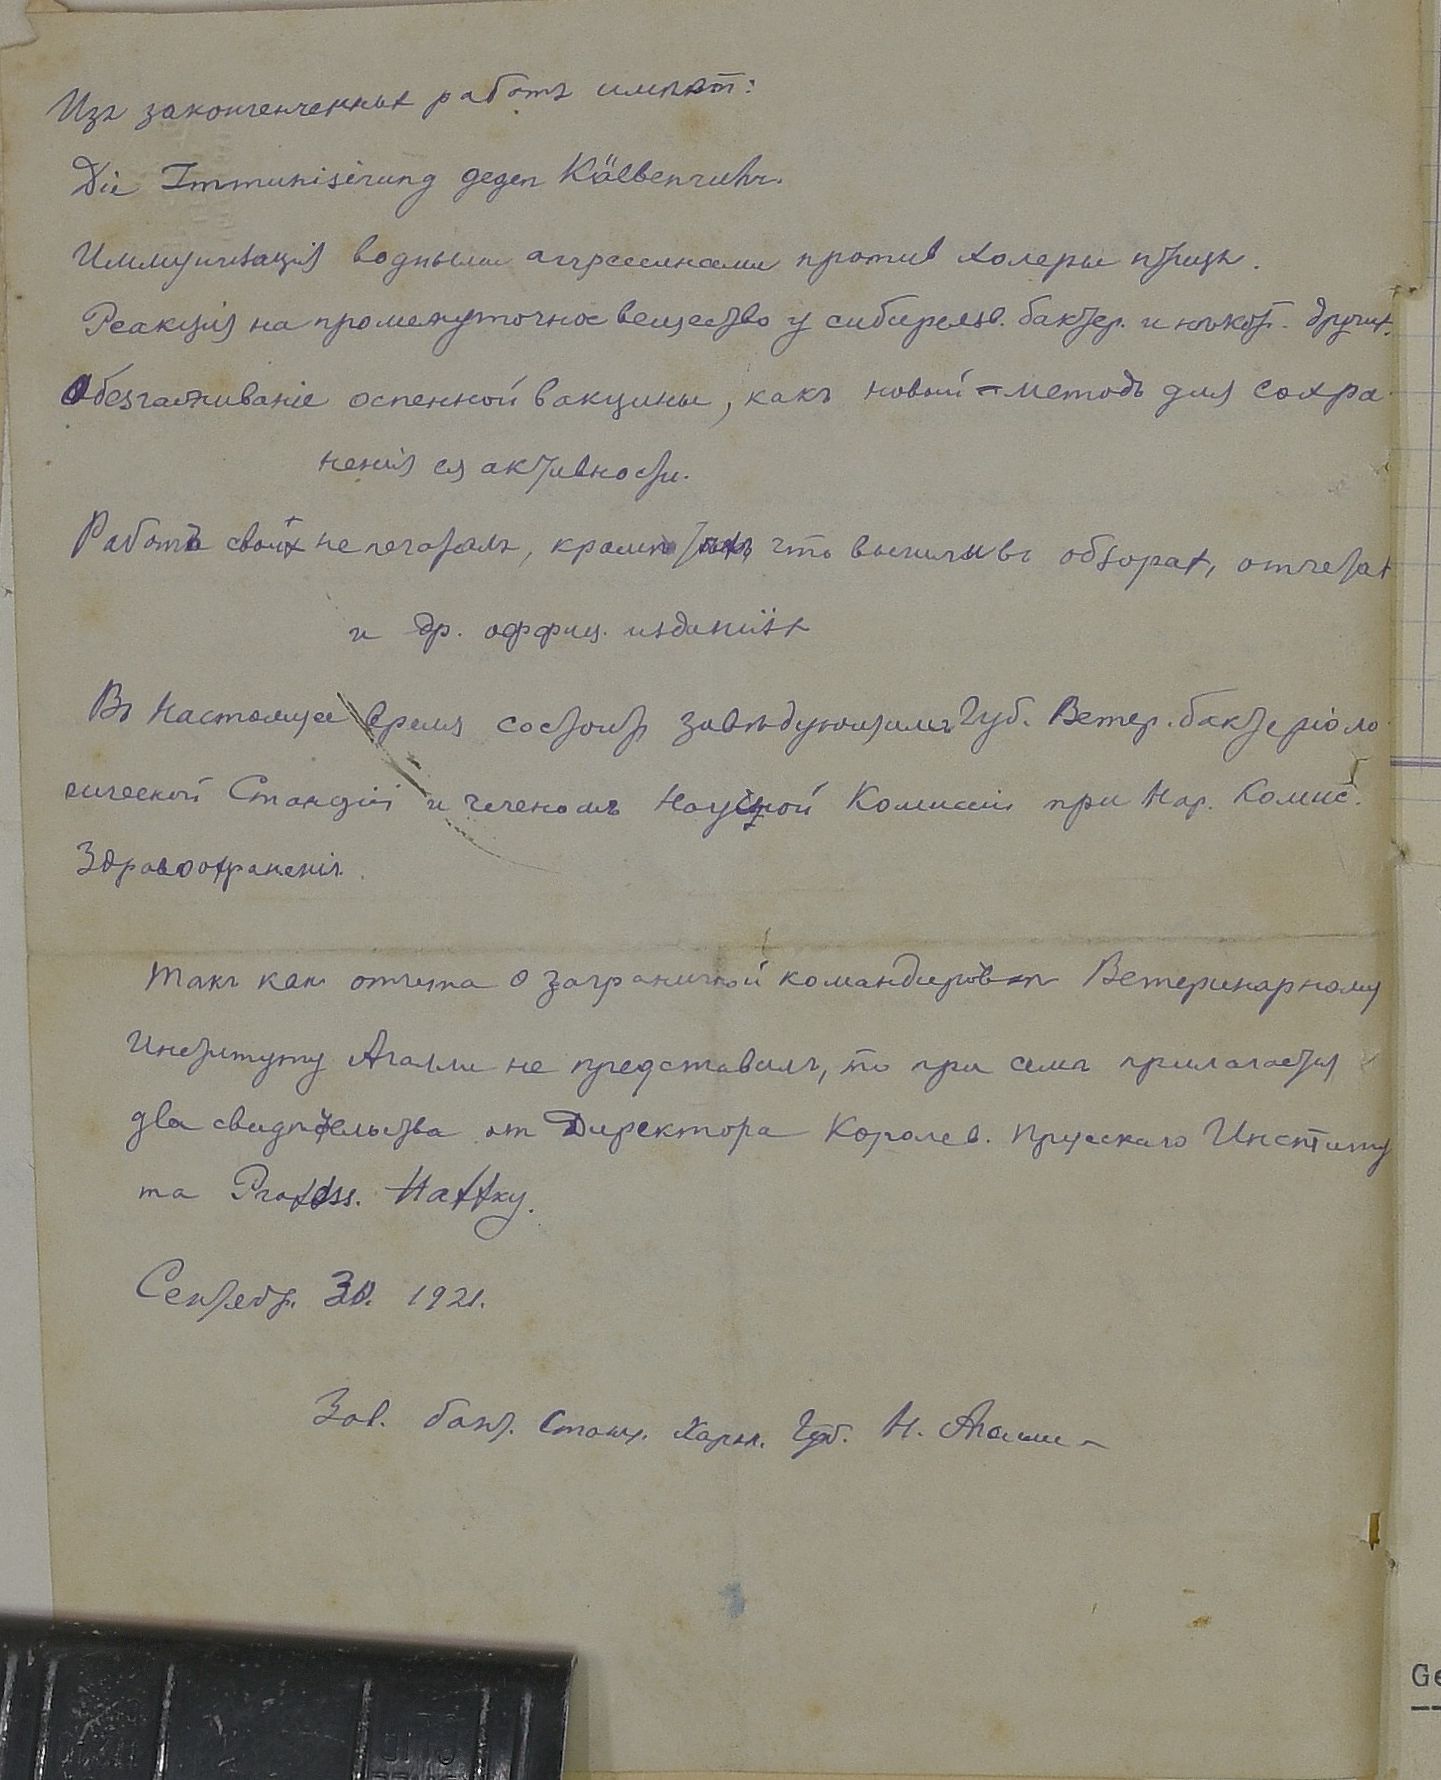 Изъ законченченныхъ работъ имѣют:
Die Immunisirung gegen Kälbenruhr.
Иммунизація водными аггрессинами против холеры птицъ.
Реакція на промежуточное вещество у сибиреязв. бактер. и нѣкот. других.
Обезгаживаніе оспенной вакцины, какъ новый методъ для сохра
ненія ея активности.
Работъ своих не печаталъ, кромѣ что вошли въ обзорах, отчетах
и др. оффиц. изданіях
Въ настоящее время состоит завѣдующимъ Губ. Ветер. бактеріоло
гической Станціи и членомъ Научной Комиссіи при Нар. Комис.
Здравоохраненія.
Такъ как отчета о заграничной командировкѣ Ветеринарному
Институту Агалли не представилъ, то при семъ прилагается
два свидѣтельства от Директора Королев. Прусскаго Институ
та Profess.
Сентябр. 30. 1921.
Зав. бакт. Станц. Харьк. Губ. Н. Агалли